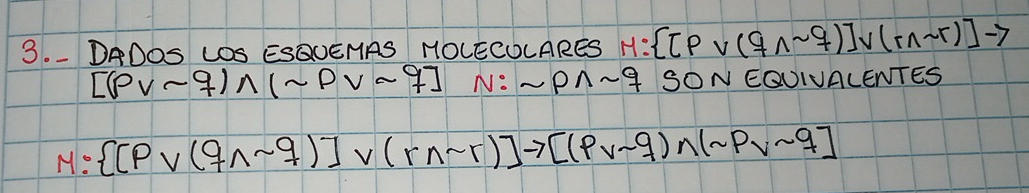 3.- DADOS LOS ESQUEMAS MOLECULARES M:{[P ∨ (q ∧ ~q)] ∨ (r ∧ ~r)] →
[(P ∨ ~q) ∧ (~P ∨ ~q] N: ~P ∧ ~q SON EQUIVALENTES
M:{[P ∨ (q ∧ ~q)] ∨ (r ∧ ~r)] → [(P ∨ ~q) ∧ (~P ∨ ~q]